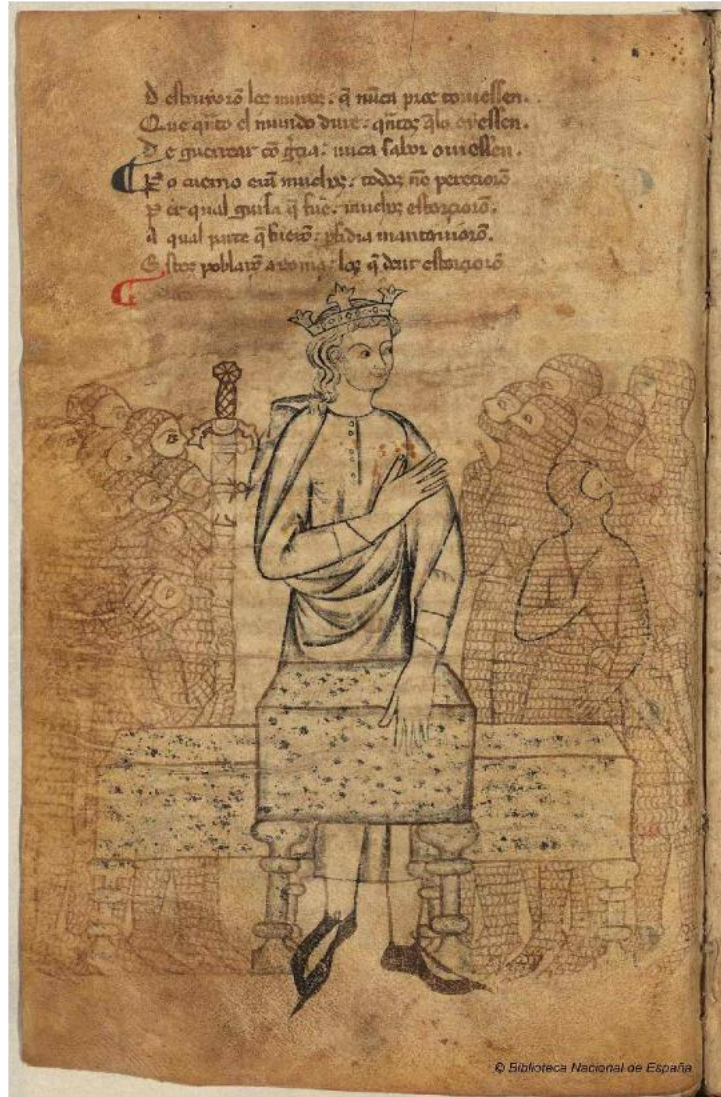 D estruyorõ los muros: q̃ nũca proe touiessen.
Q ue qñto el mundo dure: qñtos q̃lo oyessen.
D e guerrear cõ gẽia: nuca sabor ouiessen.
P o cuemo erã muchos: todos nõ pereciorõ
P or qual guisa q̃ fue: muchos estorciorõ.
A qual parte q̃ fuerõ: pfidia mantouiorõ.
E stos poblarõ a roma: los q̃ dent estorciorõ
© Biblioteca Nacional de España